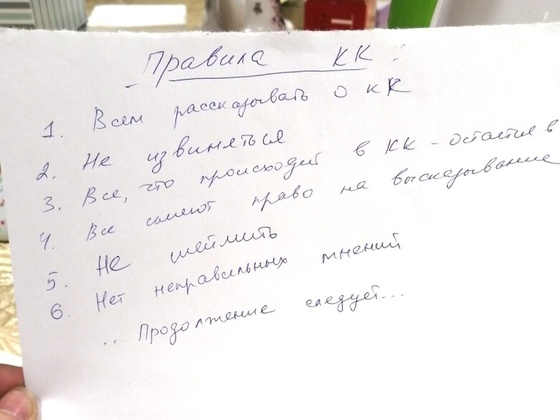 Правила КК:
1. Всем рассказывать о КК
2. Не извиняться
3. Все, что происходит в КК - остается в
4. Все имеют право на высказывание
5. Не шеймить
6. Нет неправильных мнений
... Продолжение следует...